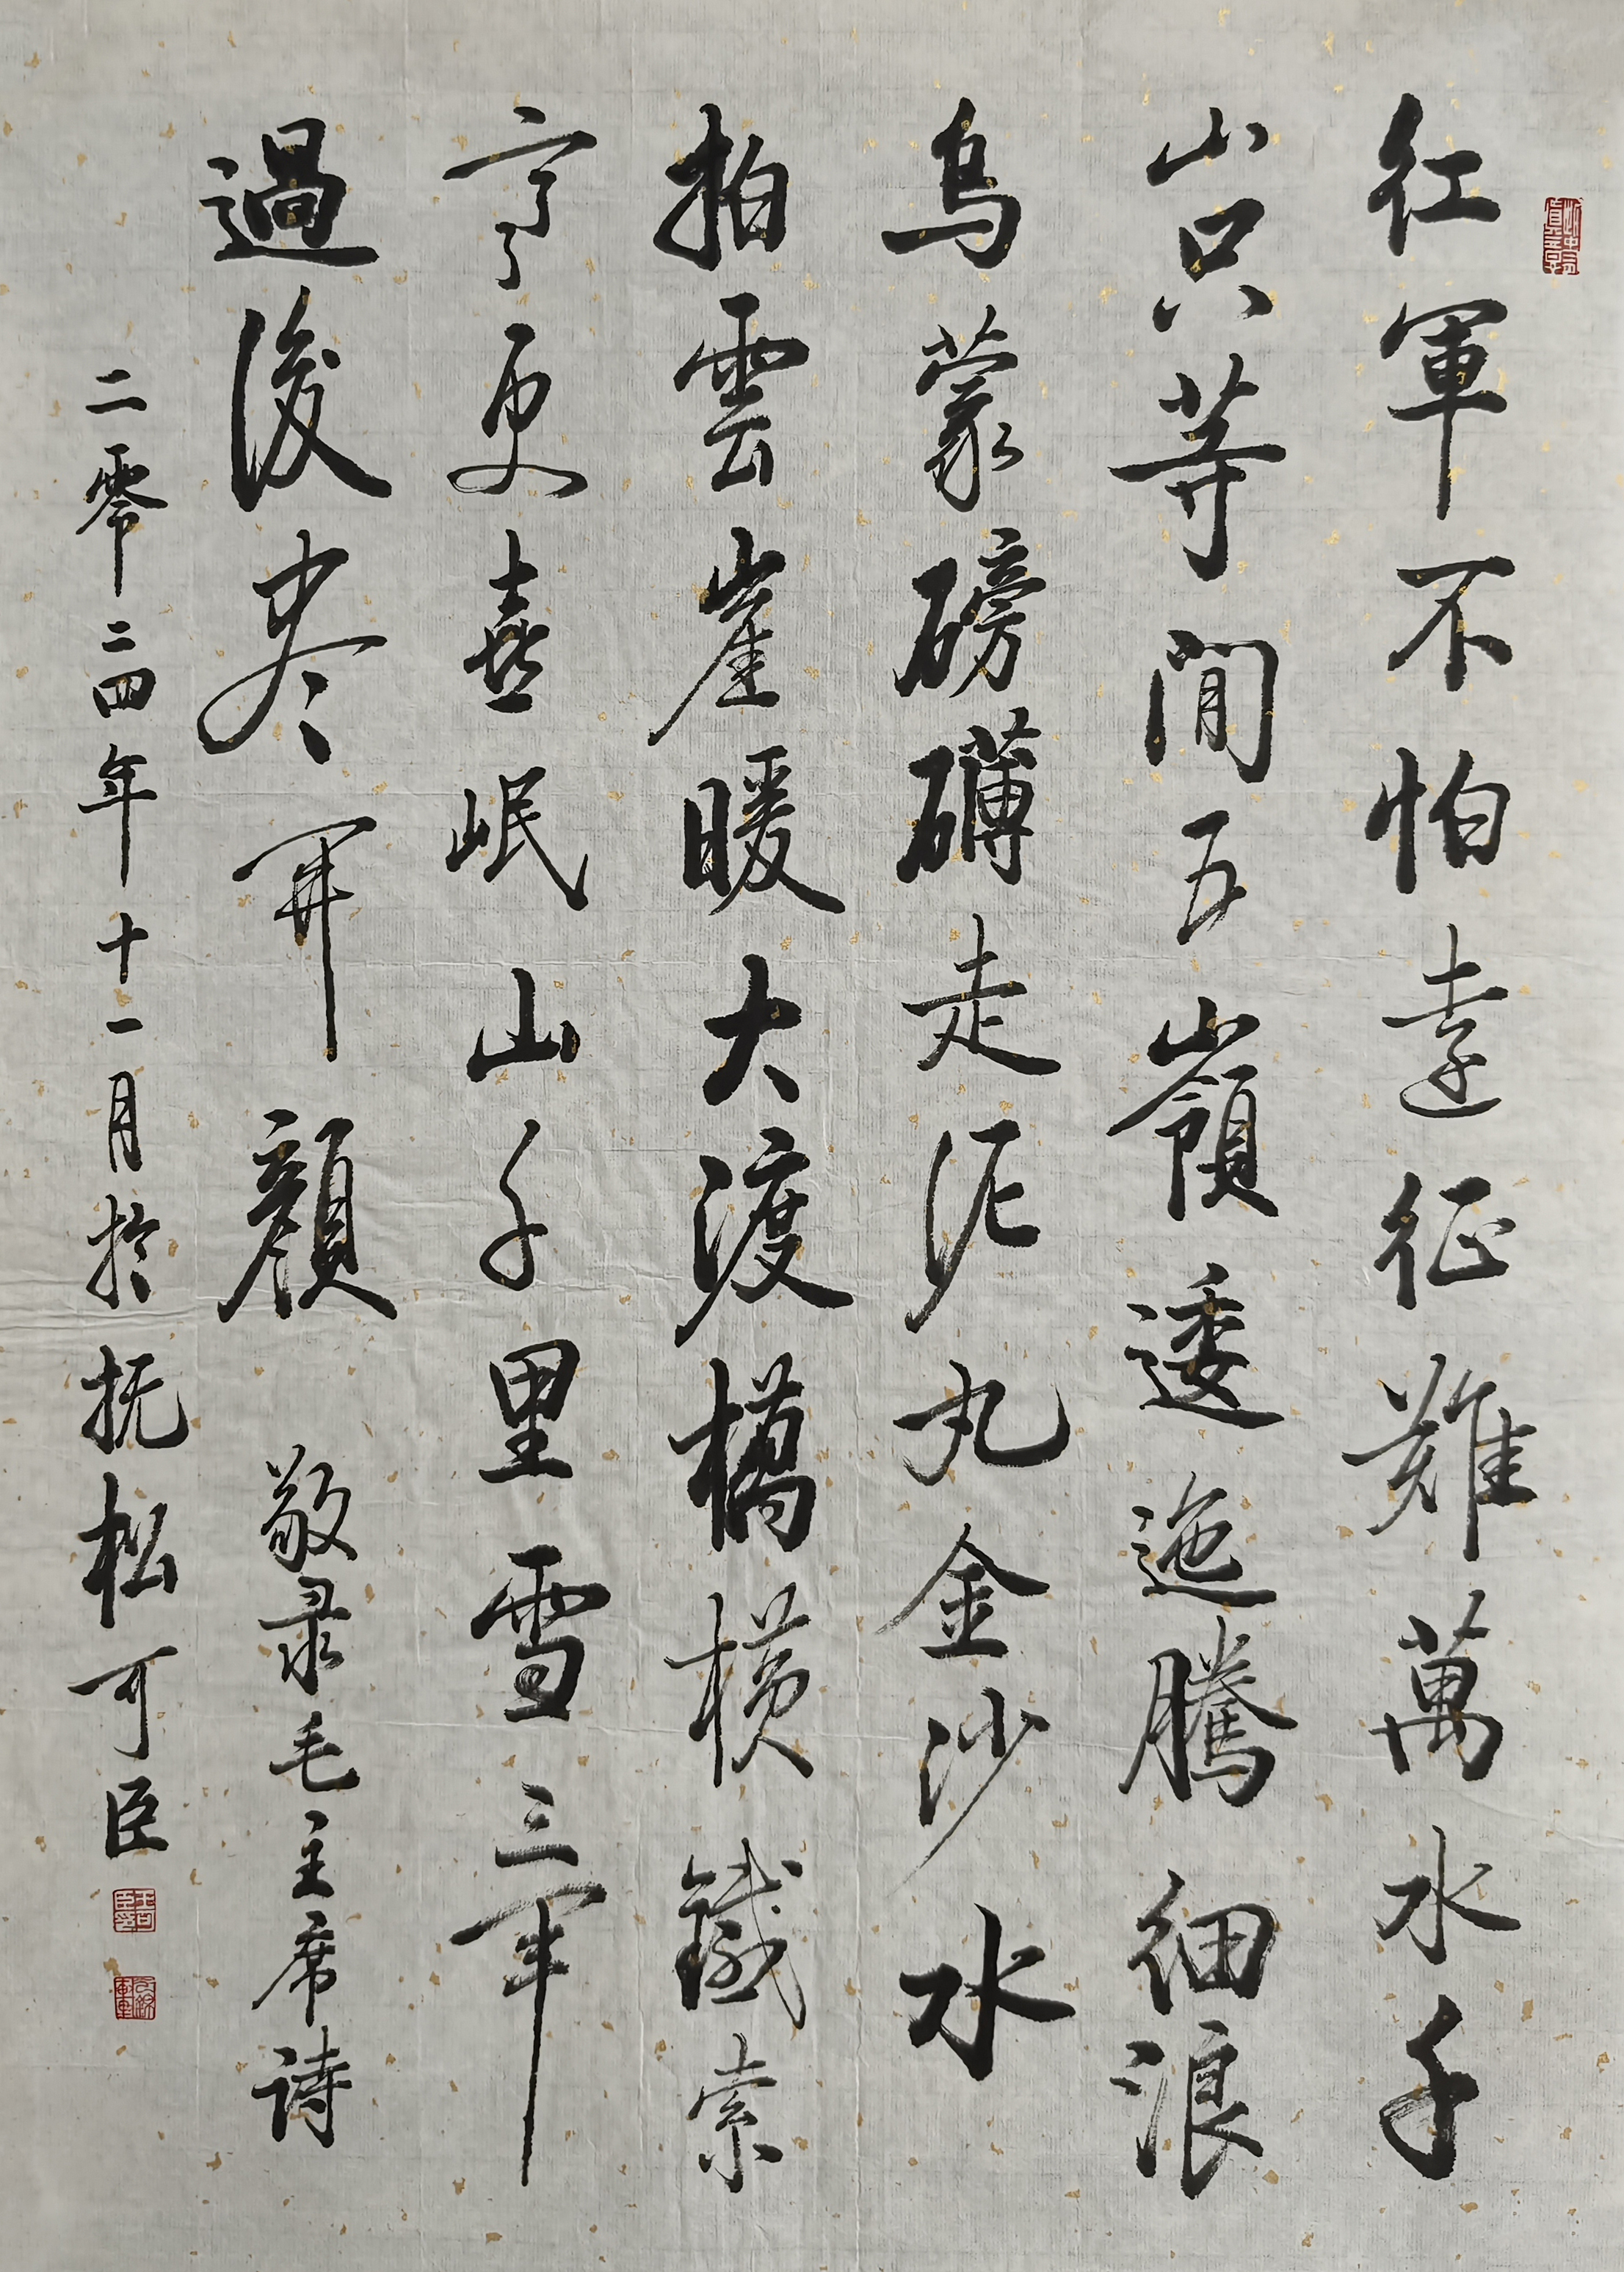 红軍不怕遠征難萬水千
山只等閒五嶺逶迤騰細浪
烏蒙磅礴走泥丸金沙水
拍雲崖暖大渡橋橫鐵索
寒更喜岷山千里雪三軍
過後盡開顏 敬录毛主席诗
二零二四年十一月於抚松可臣